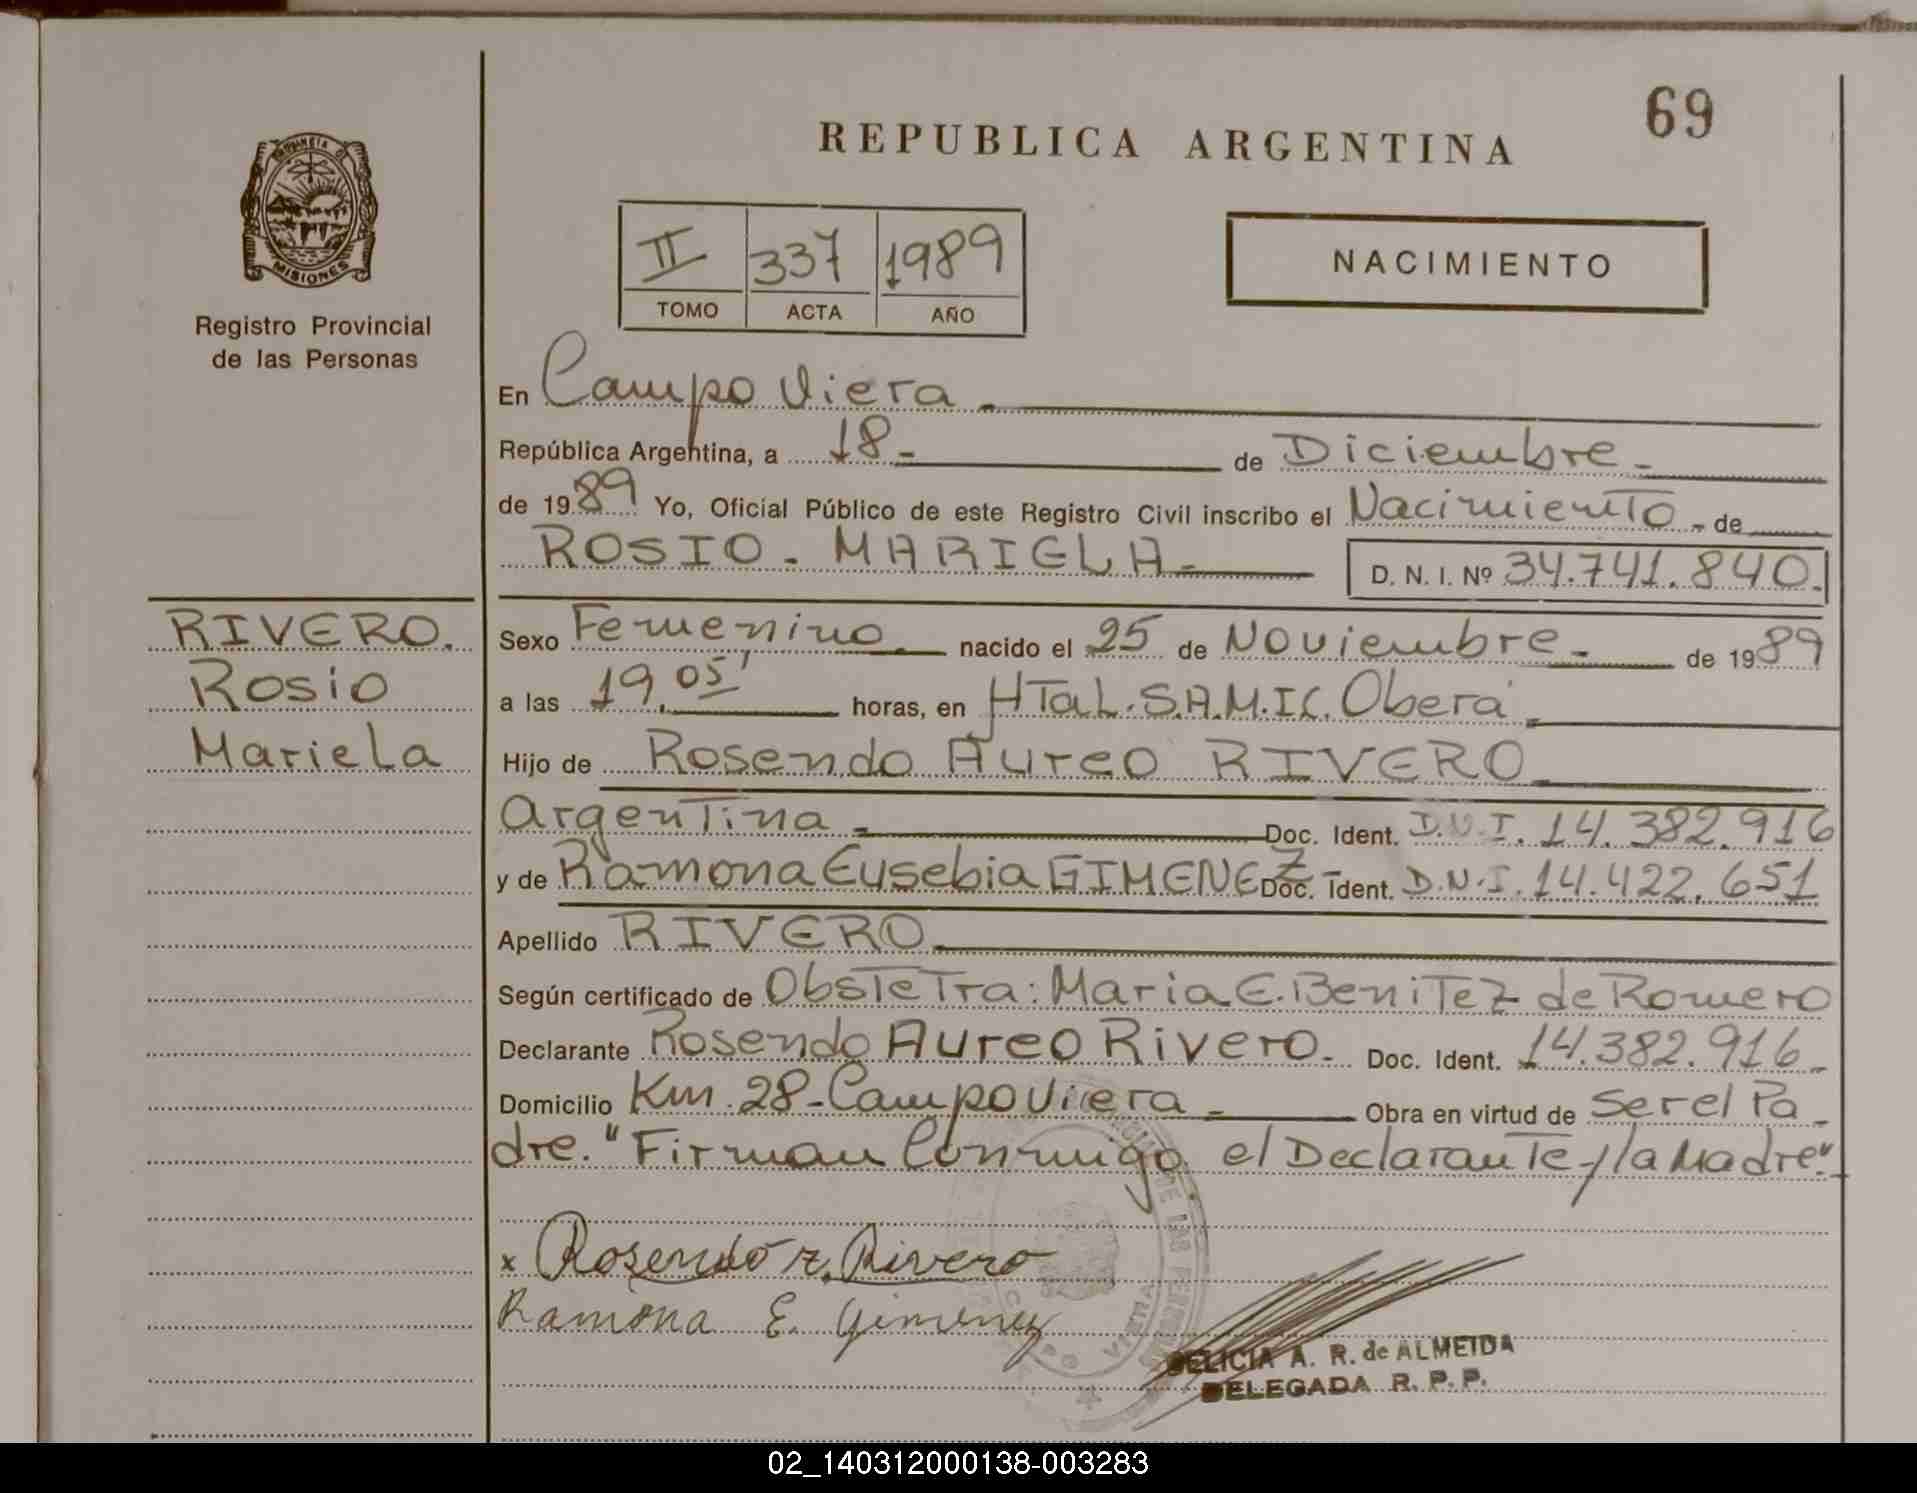 69
REPUBLICA ARGENTINA
PROVINCIA D
MISIONES
Registro Provincial
de las Personas
II 337 1989
TOMO ACTA AÑO
NACIMIENTO
En Campo Viera.
República Argentina, a 18- de Diciembre.
de 1989 Yo, Oficial Público de este Registro Civil inscribo el Nacimiento - de
ROSIO - MARIELA - D. N. I. Nº 34.741.840.
RIVERO.
Rosio
Mariela
Sexo Femenino. nacido el 25 de Noviembre - de 1989
a las 19.05' horas, en HTaL. S.A.M.IC. Oberá
Hijo de Rosendo Aureo RIVERO
Argentina - Doc. Ident. D.N.I. 14.382.916
y de Ramona Eusebia GIMENEZ - Doc. Ident. D.N.I. 14.422.651
Apellido RIVERO
Según certificado de Obstetra: Maria E. Benitez de Romero
Declarante Rosendo Aureo Rivero. Doc. Ident. 14.382.916-
Domicilio Km. 28-Campo Viera - Obra en virtud de Ser el Pa
dre. "Firman Conmigo el Declarante y la Madre"
x Rosendo r. Rivero
Ramona E. Gimenez
DELICIA A. R. de ALMEIDA
DELEGADA R. P. P.
02_140312000138-003283